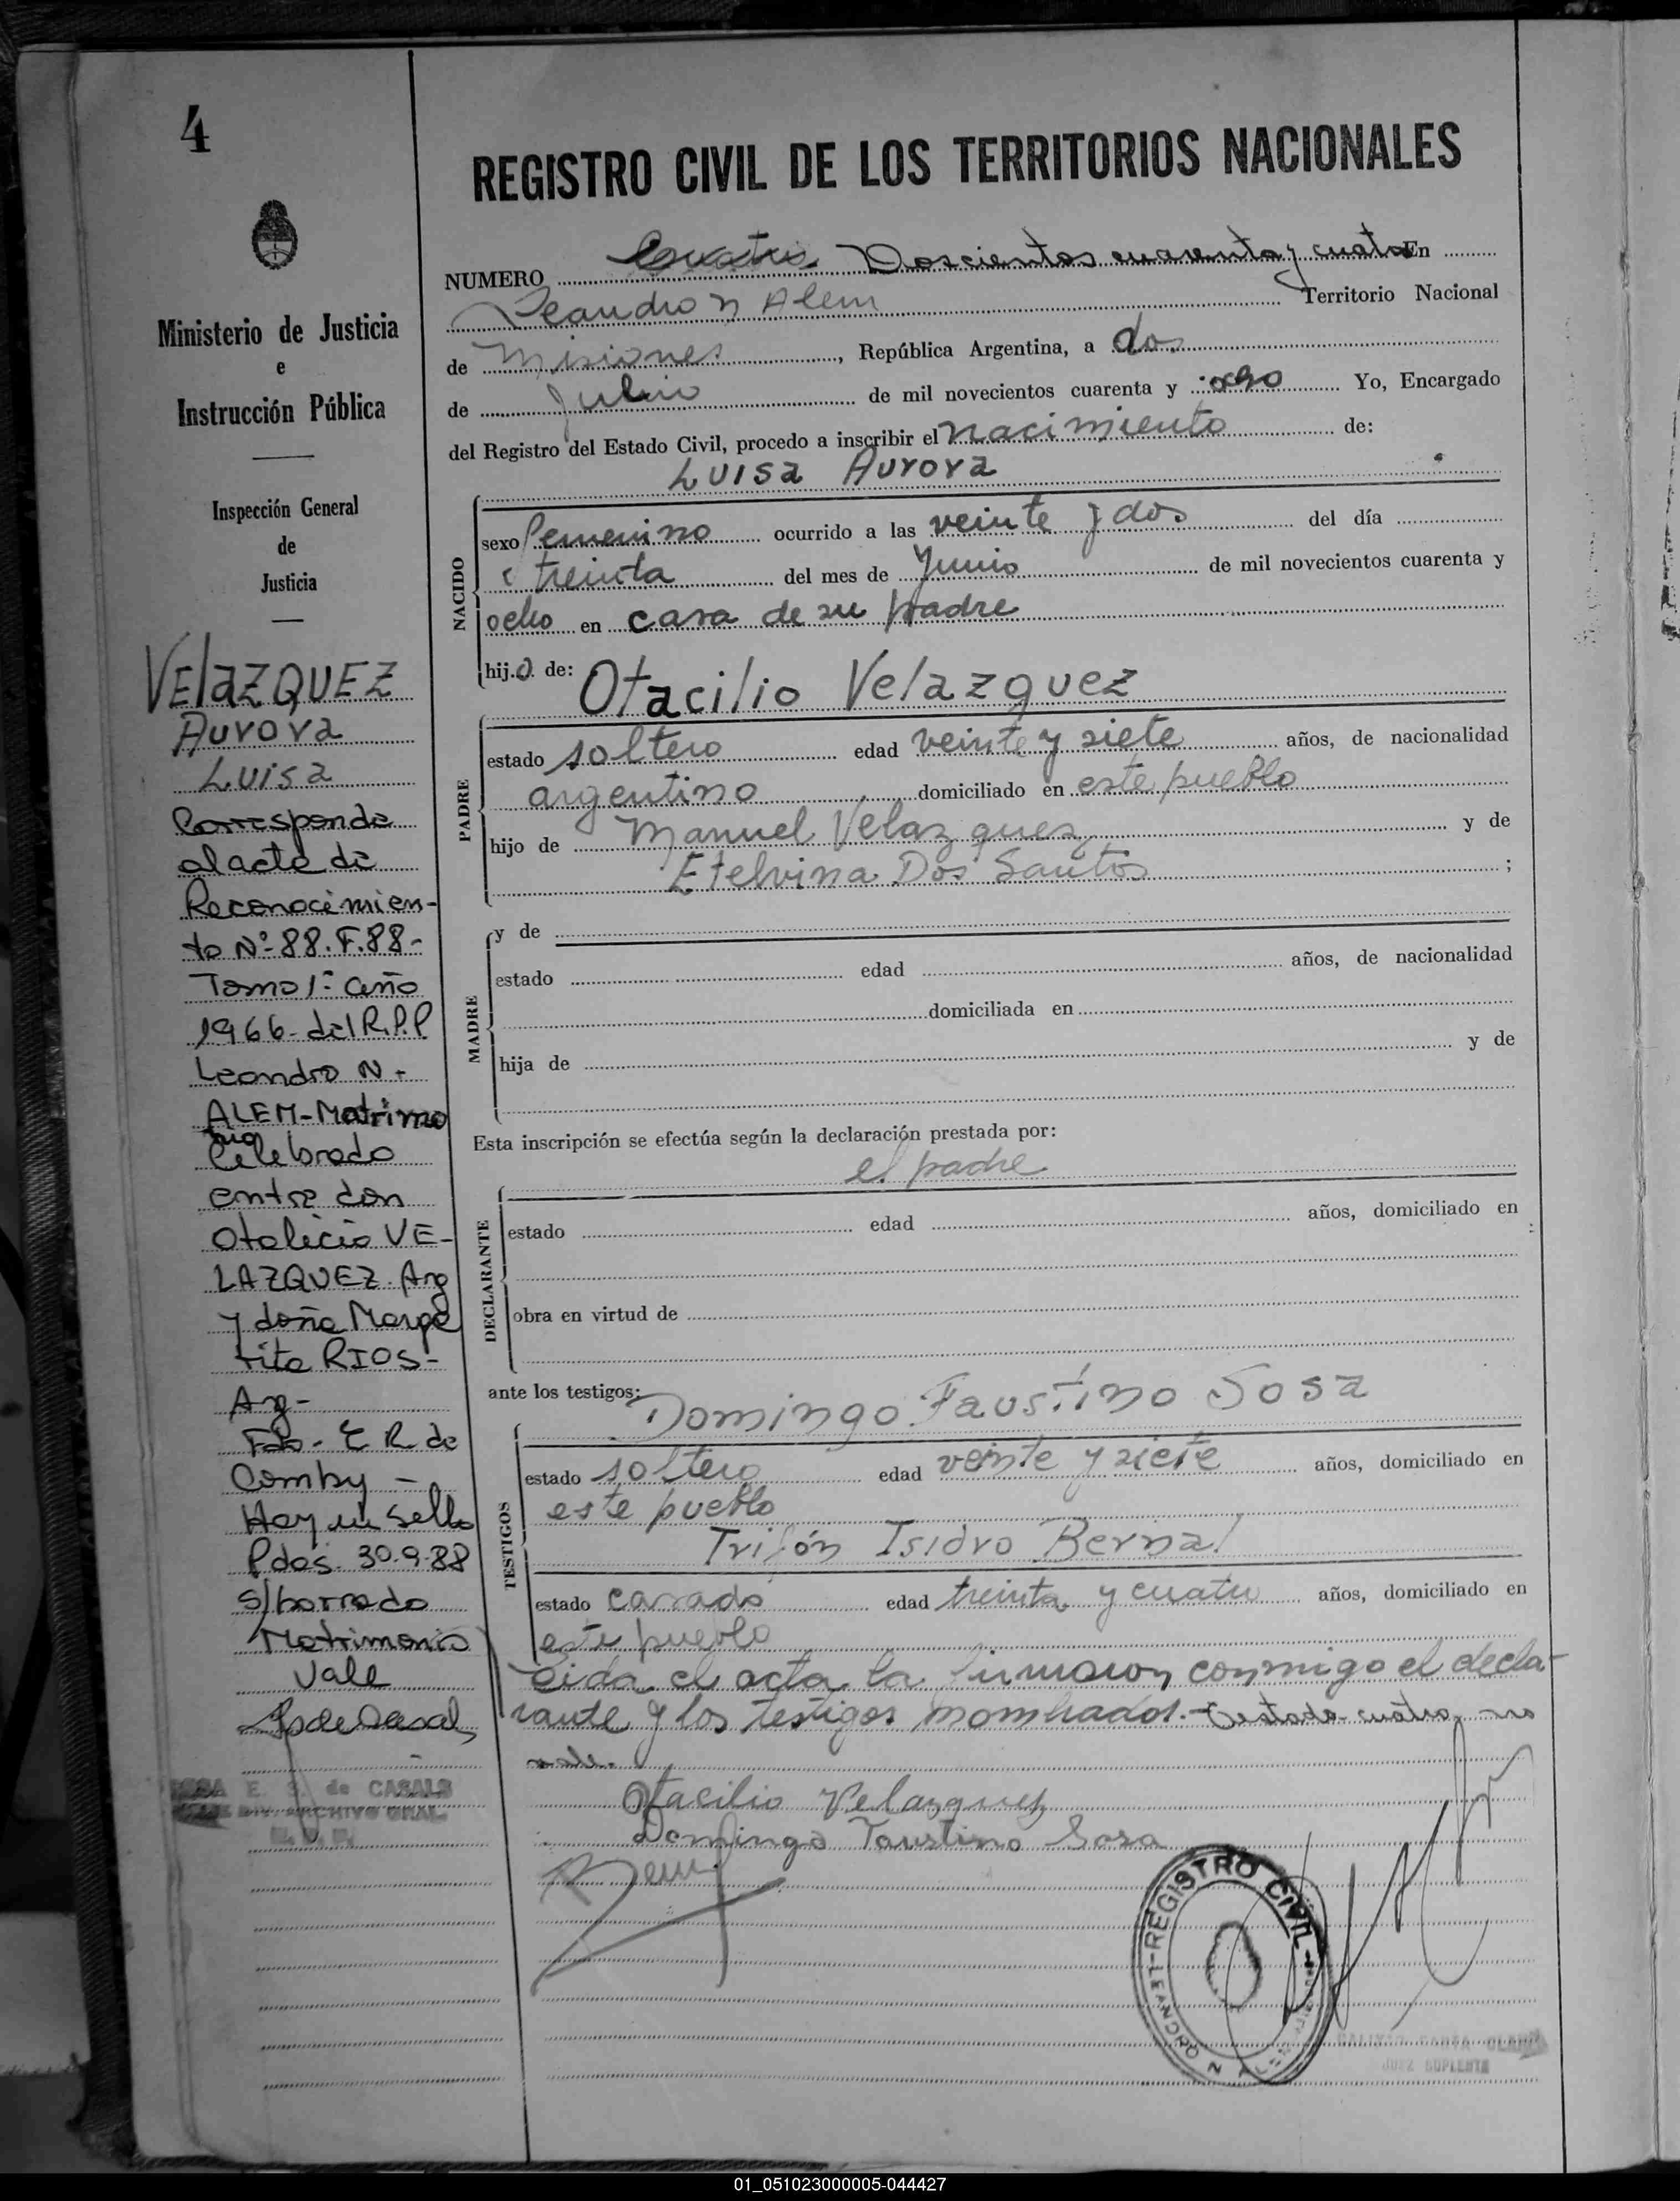 4
Ministerio de Justicia
e
Instrucción Pública
Inspección General
de
Justicia
VElaZQUEZ
Aurora
Luisa
Corresponde
al acta de
Reconocimien-
to Nº 88. F. 88-
Tomo 1º año
1966- del R.P.P
Leandro N-
ALEM-Matrimo
nio
Celebrado
entre don
Otalicio VE-
LAZQUEZ. Arg
y doña Marga
rita RIOS-
Arg-
Fdo- E R de
Comby -
Hay un sello
Pdas. 30-9-88
s/borrado
Matrimonio
Vale
E. S. de CASALS
DIV. ARCHIVO GRAL.
REGISTRO CIVIL DE LOS TERRITORIOS NACIONALES
NUMERO Cuatro Doscientos cuarenta y cuatro En
Leandro N Alem Territorio Nacional
de Misiones, República Argentina, a dos
de Julio de mil novecientos cuarenta y ocho Yo, Encargado
del Registro del Estado Civil, procedo a inscribir el nacimiento de:
Luisa Aurora
NACIDO
sexo femenino ocurrido a las veinte y dos del día
treinta del mes de Junio de mil novecientos cuarenta y
ocho en casa de su padre
hij.a de: Otacilio Velazquez
PADRE
estado soltero edad veinte y siete años, de nacionalidad
argentino domiciliado en este pueblo
hijo de Manuel Velazquez y de
Etelvina Dos Santos ;
MADRE
y de
estado edad años, de nacionalidad
domiciliada en
hija de y de
Esta inscripción se efectúa según la declaración prestada por:
el padre
DECLARANTE
estado edad años, domiciliado en
obra en virtud de
ante los testigos: Domingo Faustino Sosa
TESTIGOS
estado soltero edad veinte y siete años, domiciliado en
este pueblo
Trifón Isidro Bernal
estado casado edad treinta y cuatro años, domiciliado en
este pueblo
Leida el acta la firmaron conmigo el decla-
rante y los testigos nombrados.- Testado cuatro, no
vale.
Otacilio Velazquez
Domingo Faustino Sosa
REGISTRO CIVIL
JUEZ SUPLENTE
01_051023000005-044427